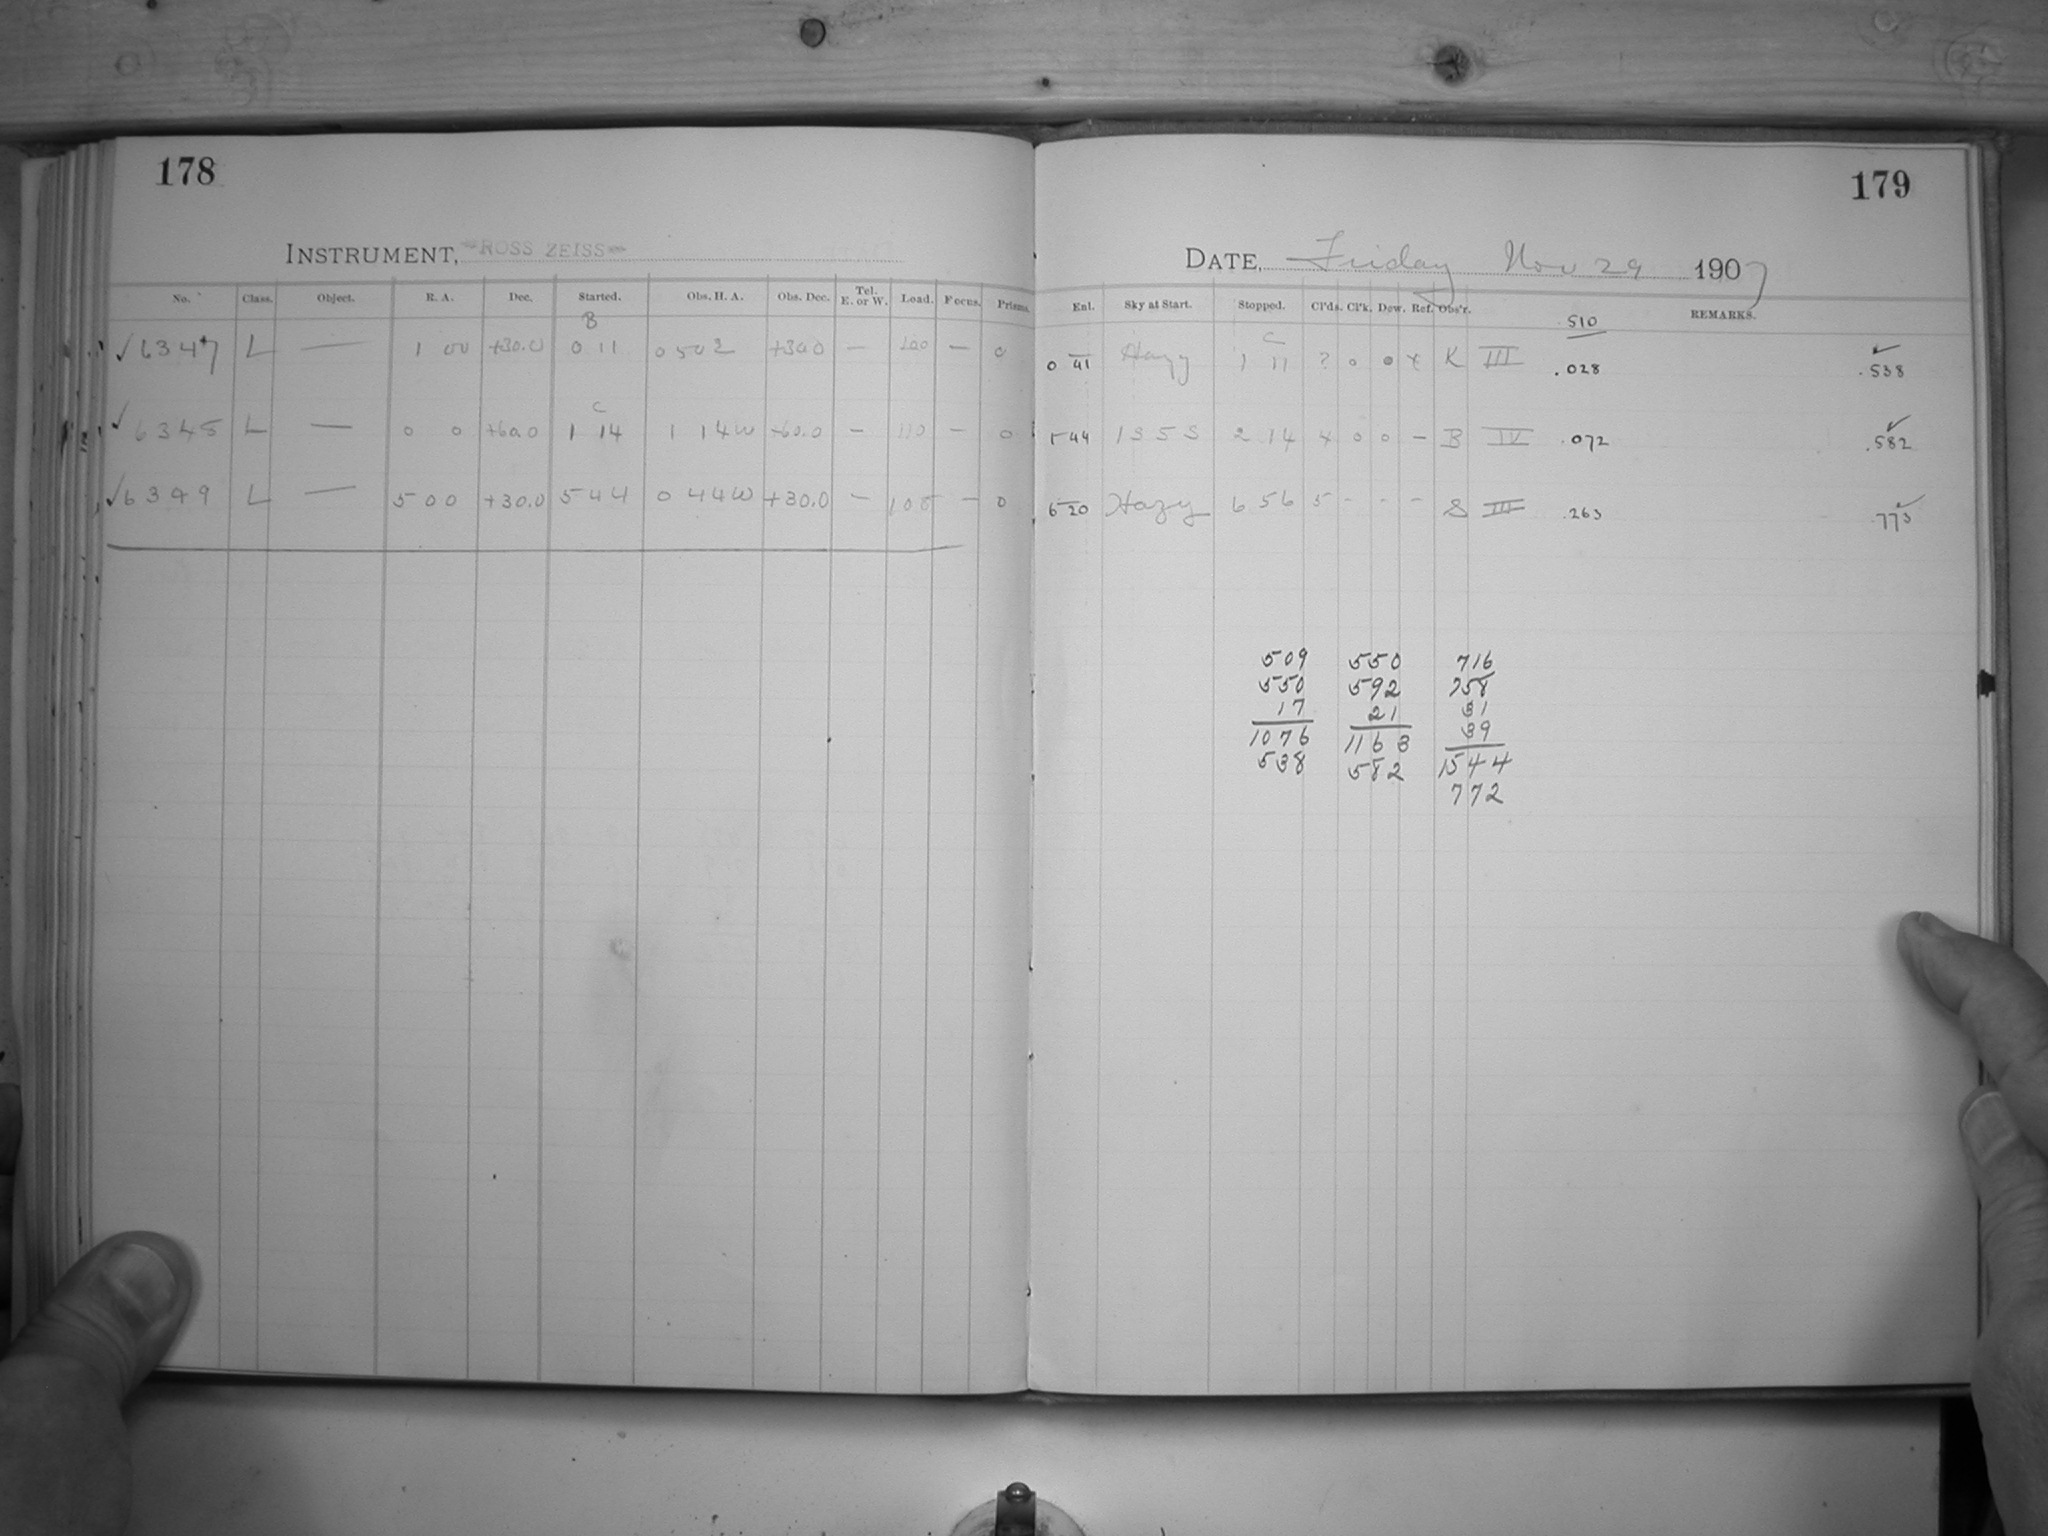 178
INSTRUMENT, ROSS ZEISS
No. Class. Object. R. A. Dec. Started. Obs. H. A. Obs. Dec. Tel. E. or W. Load. Focus. Prisms.
B
✓ 6347 L — 1 00 +30.0 0 11 0 50 2 +30.0 — 100 — 0
C
✓ 6348 L — 0 0 +60.0 1 14 1 14 W +60.0 — 110 — 0
✓ 6349 L — 5 00 +30.0 5 44 0 44 W +30.0 — 100 — 0
179
DATE, Friday Nov 29 1907
Enl. Sky at Start. Stopped. Cl'ds. Cl'k. Dew. Ref. Obs'r. REMARKS.
510
C
0 41 Hazy 1 11 ? 0 0 + K III .028 .538 ✓
1 44 1 S 5 S 2 14 4 0 0 — B IV .072 .582 ✓
6 20 Hazy 6 56 5 - - - S III .263 .773 ✓
509 550 716
550 592 758
17 21 31
1076 1163 39
538 582 1544
772